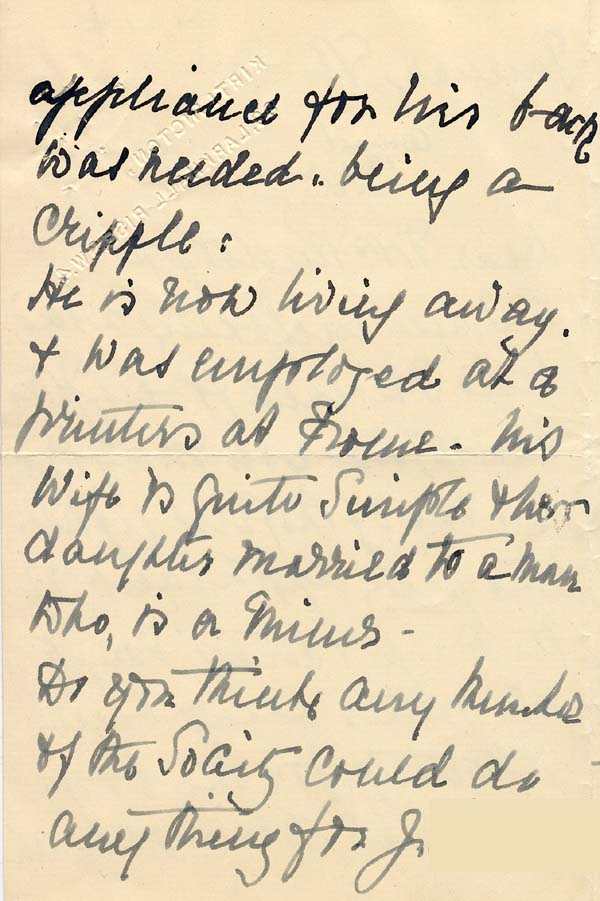 appliance for his back
was needed. being a
Cripple:
He is now living away.
& was employed at a
printers at Frome - his
Wife is quite Simple & her
daughter married to a man
who, is a Miner -
Do you think any Member
of the Society could do
any thing for J.